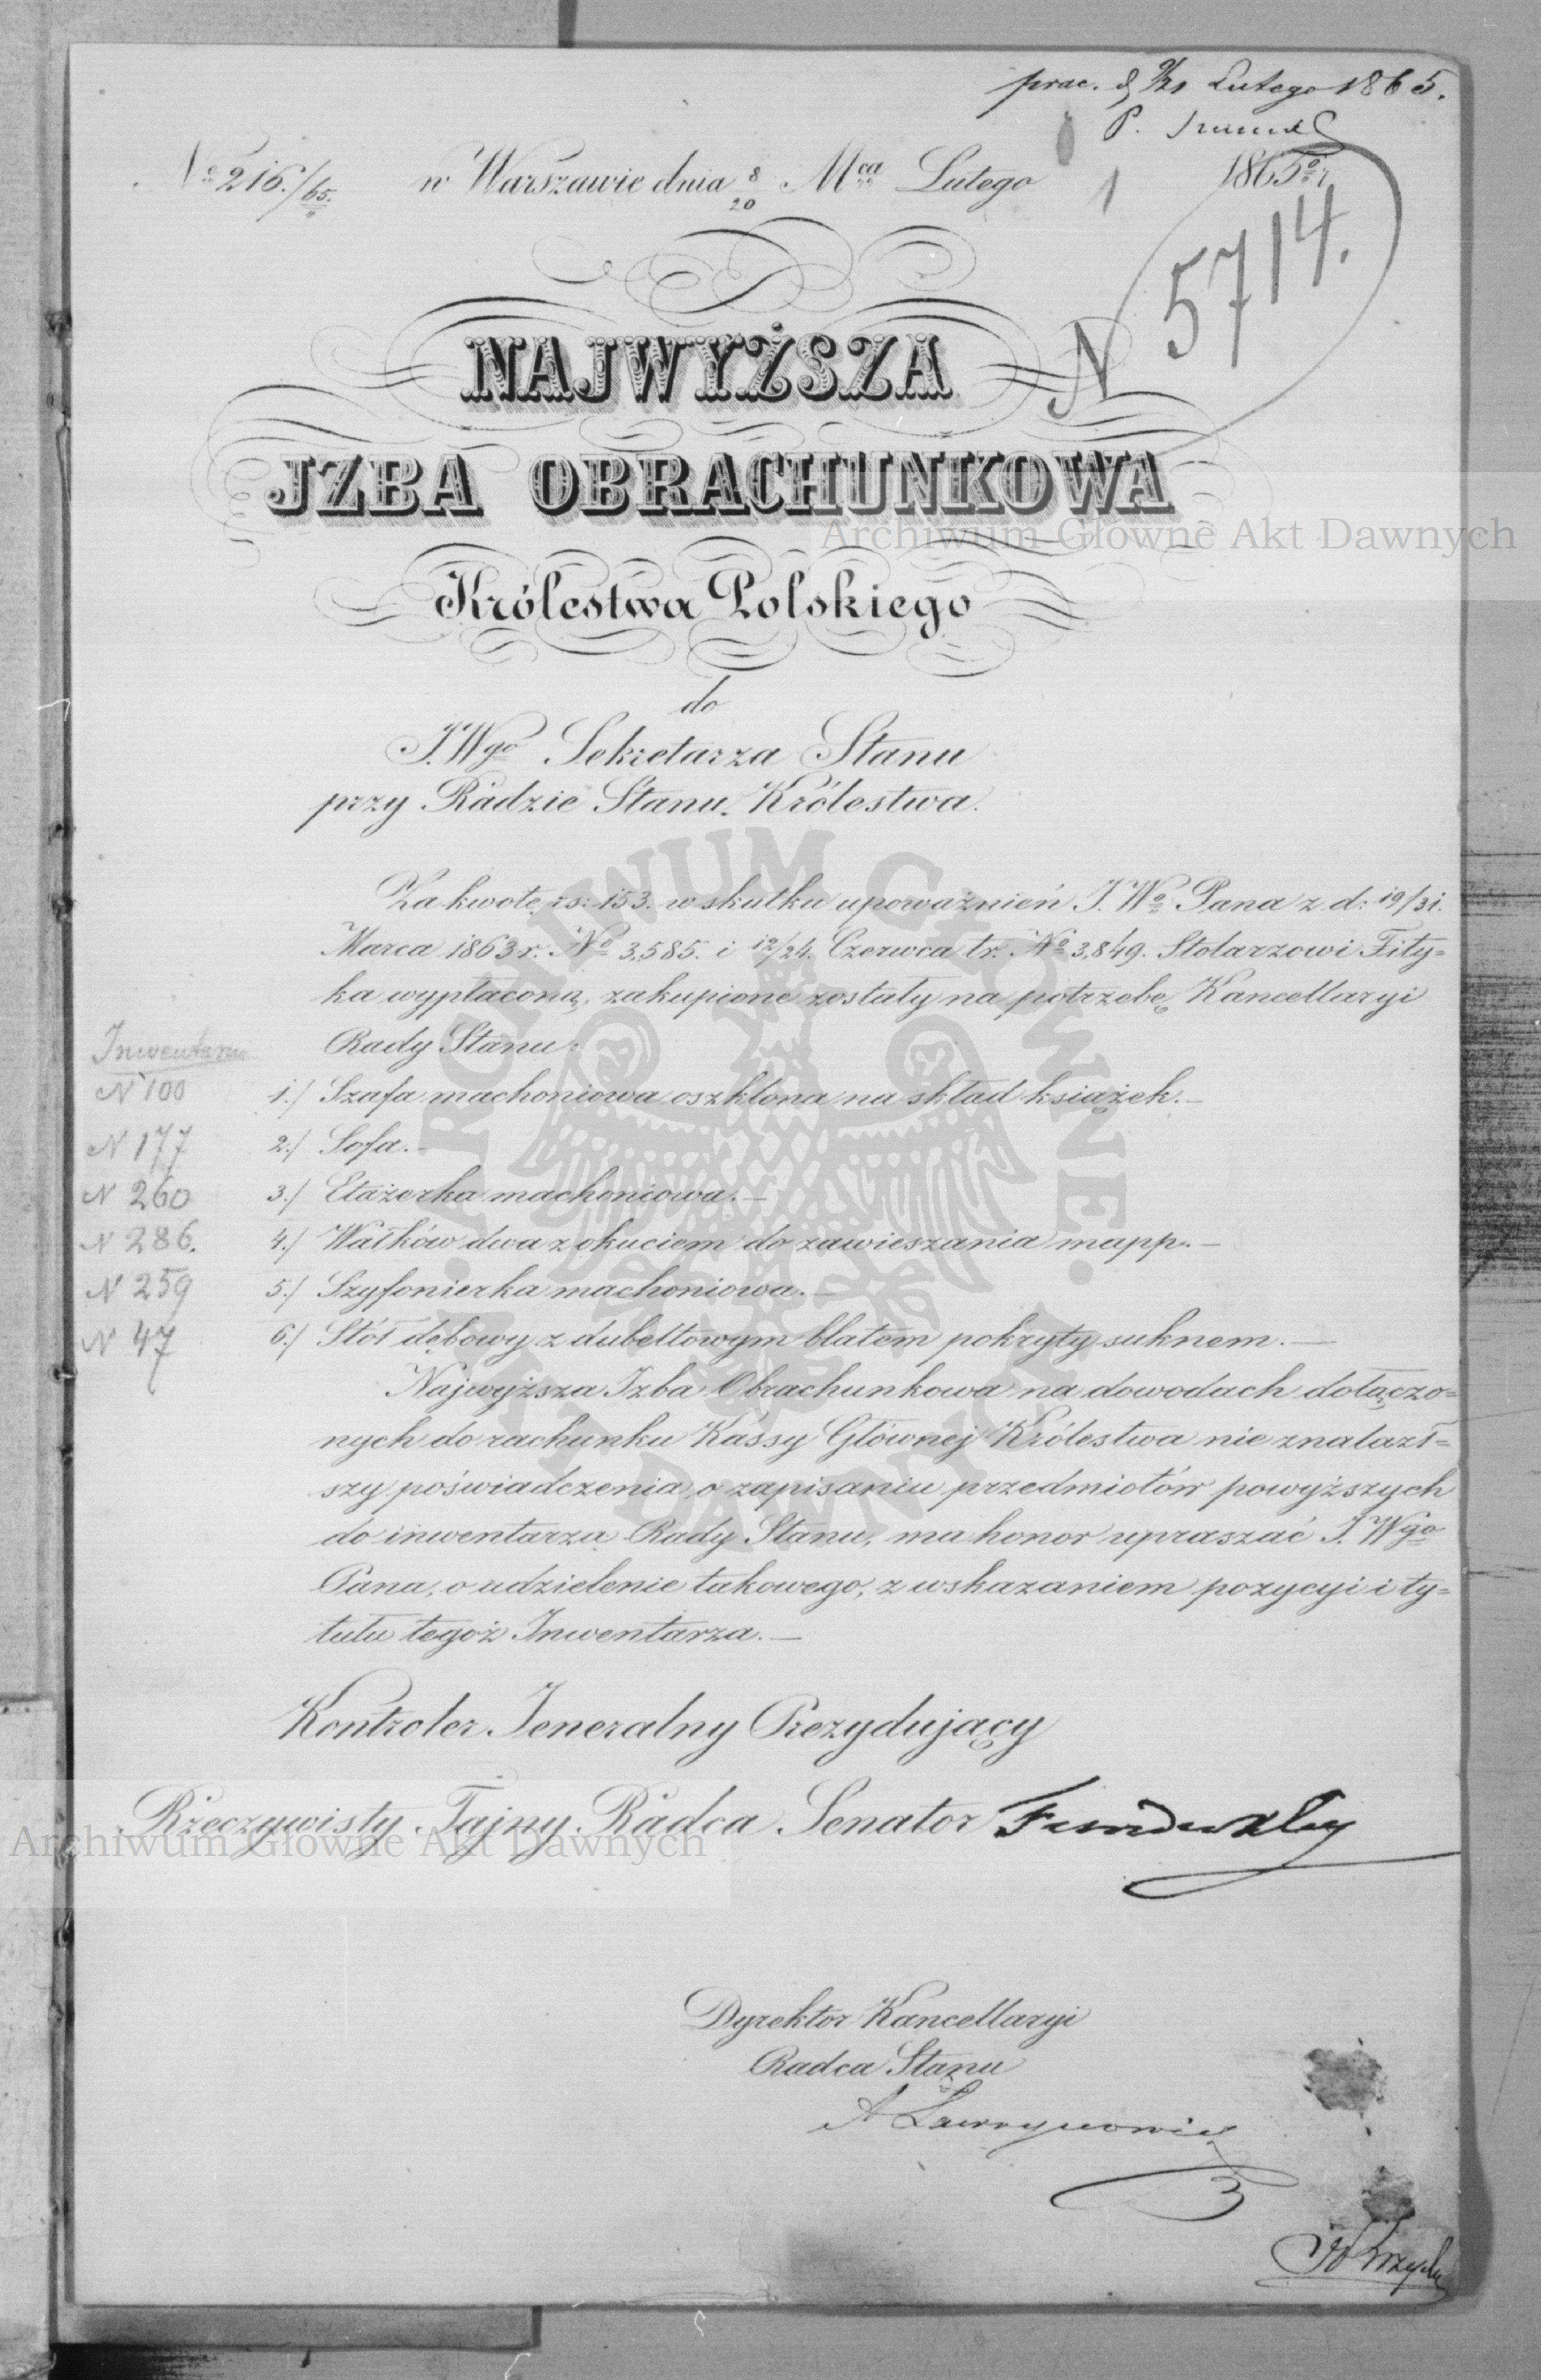 prac. d 9/21 Lutego 1865.
P.
No 216./65. w Warszawie dnia 8/20 Mca Lutego 1865 r.
1
N 5714.
NAJWYŻSZA
JZBA OBRACHUNKOWA
Królestwa Polskiego
do
J. Wgo Sekretarza Stanu
przy Radzie Stanu Królestwa.
Za kwotę rs: 153. w skutku upoważnień J. Wo Pana z d: 19/31.
Marca 1863 r. No 3,585. i 12/24. Czerwca tr. No 3,849. Stolarzowi Fity=
ka wypłaconą, zakupione zostały na potrzebę Kancellaryi
Rady Stanu:
Inwentarza
N 100 1./ Szafa machoniowa oszklona na skład książek.—
N 177 2./ Sofa.—
N 260 3./ Etażerka machoniowa.—
N 286. 4./ Wałków dwa z okuciem do zawieszania mapp.—
N 259 5./ Szyfonierka machoniowa.—
N 47 6./ Stół dębowy z dubeltowym blatem pokryty suknem.—
Najwyższa Izba Obrachunkowa na dowodach dołączo=
nych do rachunku Kassy Głównej Królestwa nie znalazł=
szy poświadczenia o zapisaniu przedmiotów powyższych
do inwentarza Rady Stanu, ma honor upraszać J. Wgo
Pana, o udzielenie takowego, z wskazaniem pozycyi i ty=
tułu tegoż Inwentarza.—
Kontroler Jeneralny Prezydujący
Rzeczywisty Tajny Radca Senator Fundukley
Dyrektor Kancellaryi
Radca Stanu
A Ławrynowicz
Archiwum Głowne Akt Dawnych
Archiwum Głowne Akt Dawnych
ARCHIWUM GŁÓWNE AKT DAWNYCH